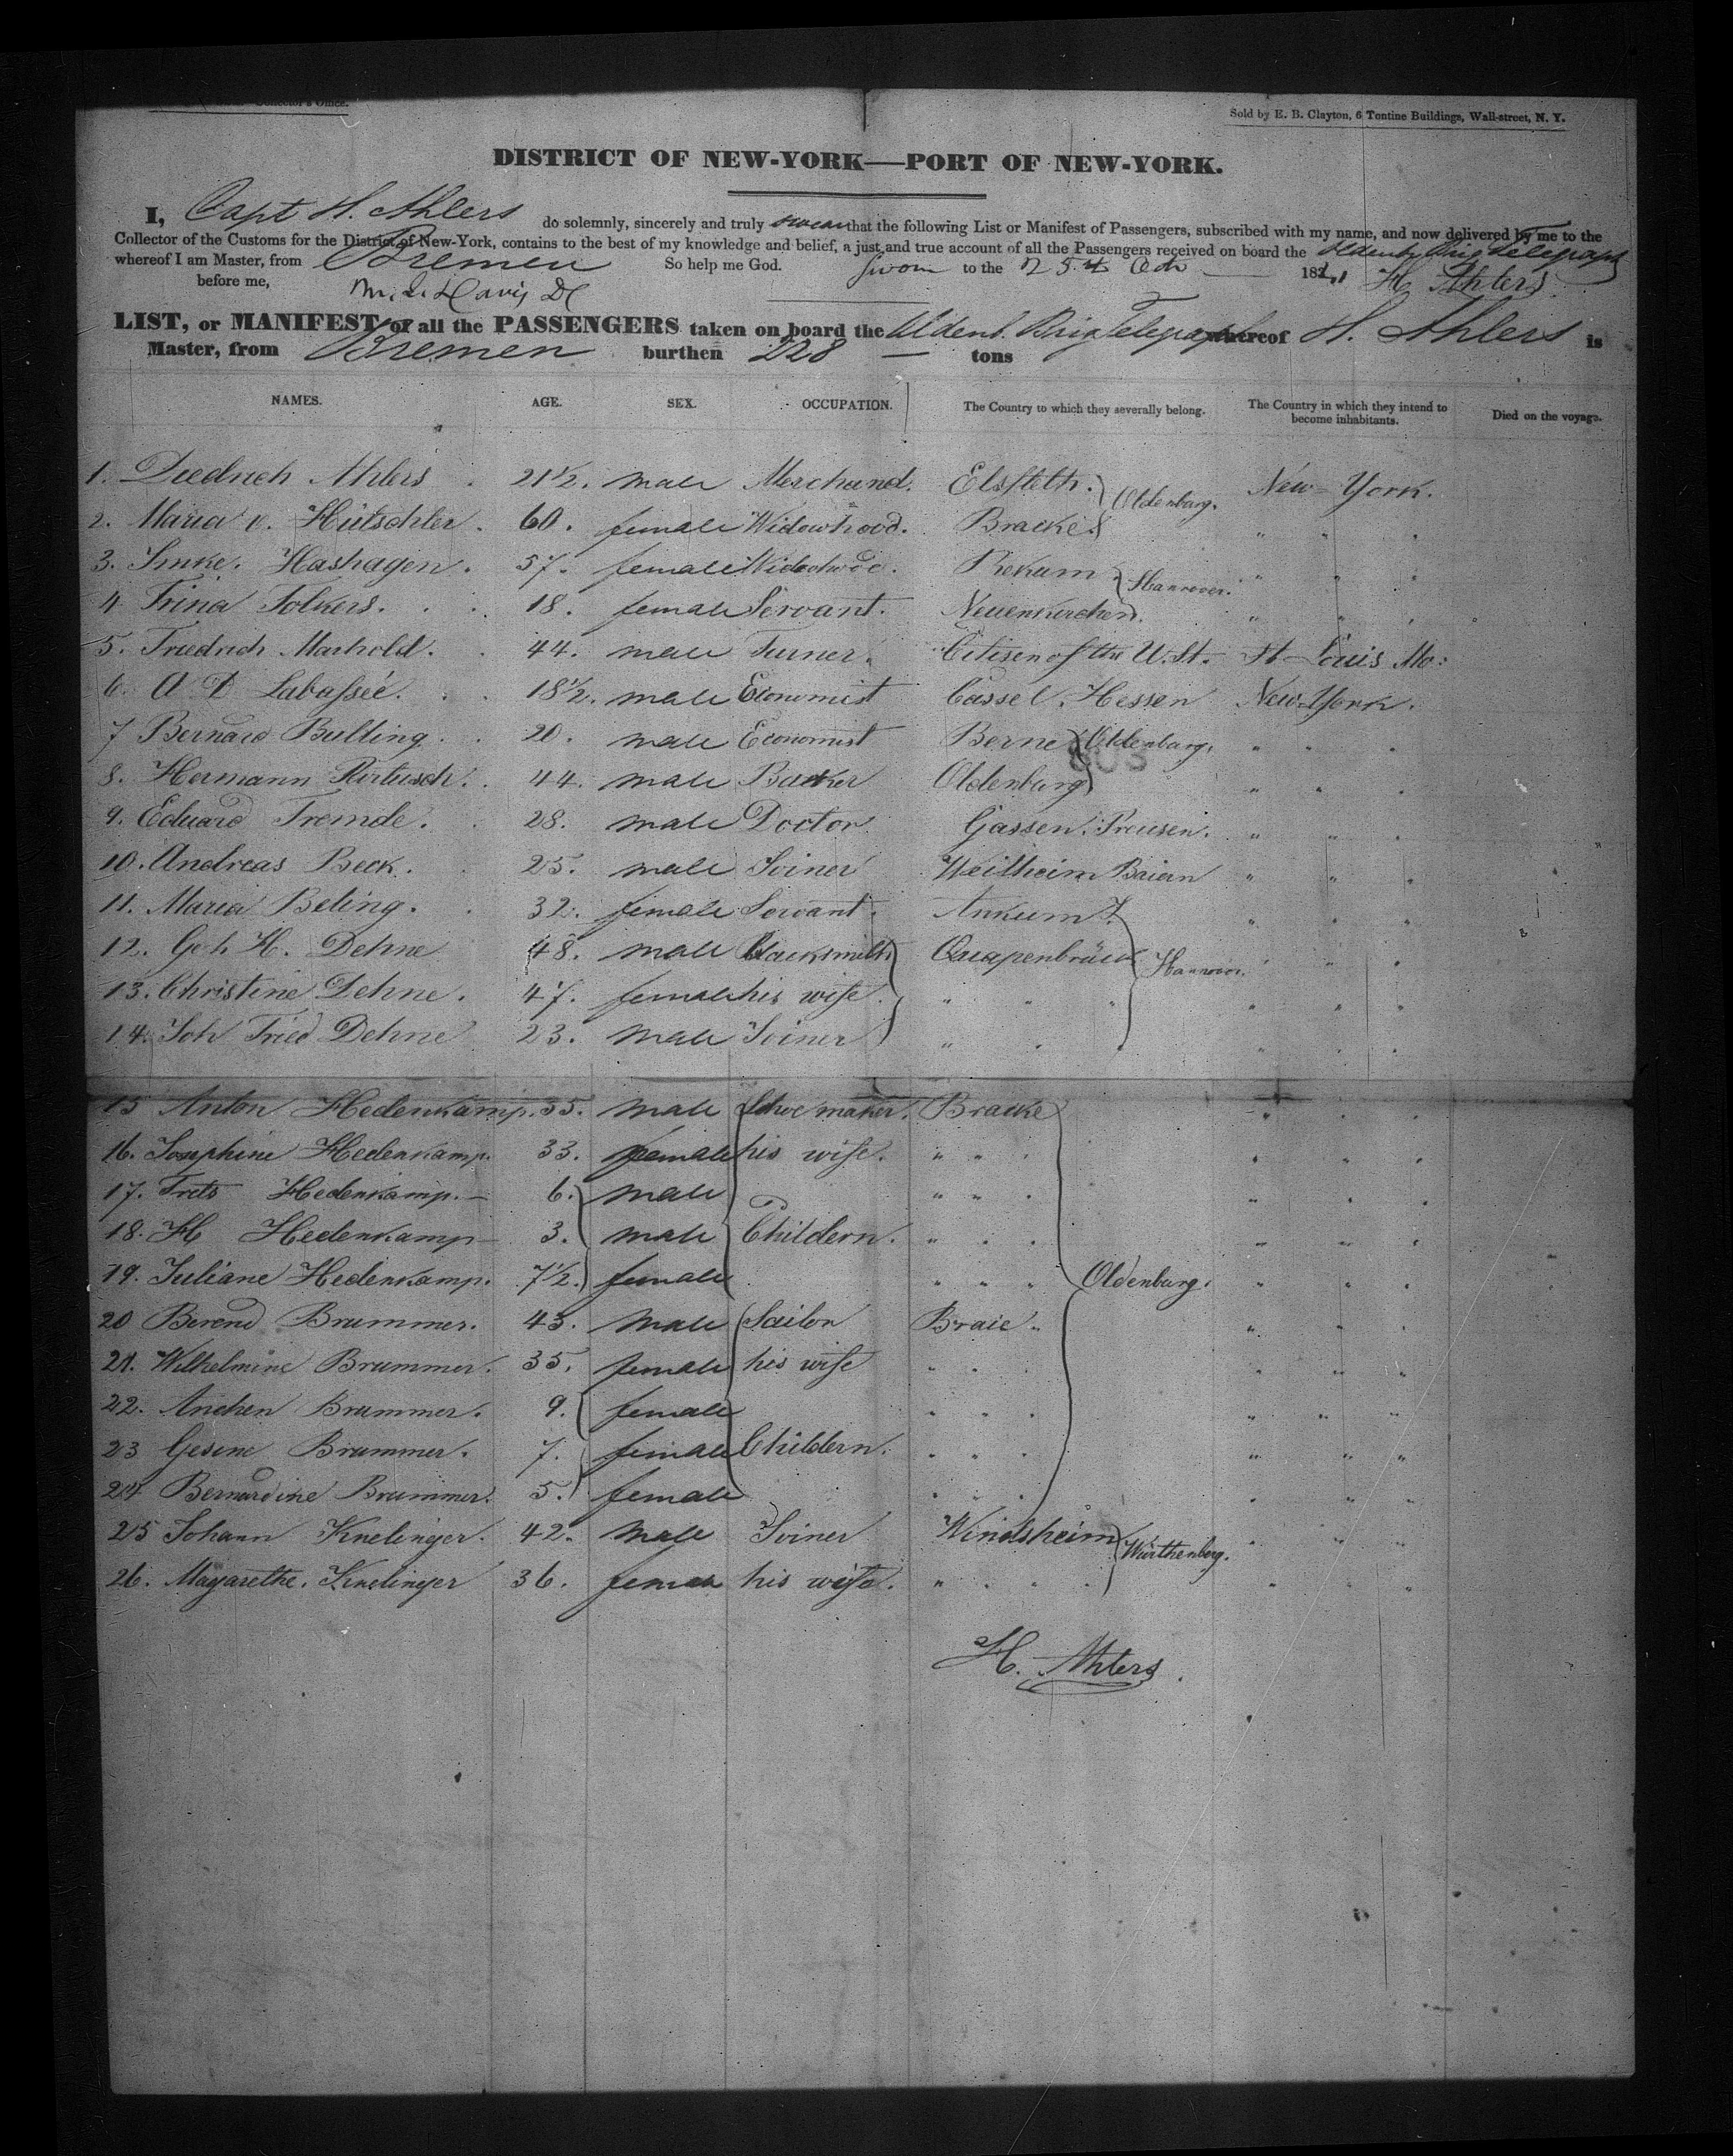 Collector's Office.
Sold by E. B. Clayton, 6 Tontine Buildings, Wall-street, N. Y.
DISTRICT OF NEW-YORK—PORT OF NEW-YORK.
I, Capt H. Ahlers do solemnly, sincerely and truly swear that the following List or Manifest of Passengers, subscribed with my name, and now delivered by me to the
Collector of the Customs for the District of New-York, contains to the best of my knowledge and belief, a just and true account of all the Passengers received on board the Oldenbg Brig Telegraph
whereof I am Master, from Bremen So help me God. Sworn to the 25th Octr 184 H Ahlers
before me, M. L. Davis DC
LIST, or MANIFEST of all the PASSENGERS taken on board the Oldenb. Brig Telegraph whereof H. Ahlers is
Master, from Bremen burthen 228 — tons
NAMES. AGE. SEX. OCCUPATION. The Country to which they severally belong. The Country in which they intend to become inhabitants. Died on the voyage.
1. Diedrich Ahlers . 21 1/2. male Merchand. Elsfleth. } Oldenburg. New-York.
2. Maria v. Hütschler . 60. female Widowhood. Bracke } " " "
3. Imke. Hashagen . 57. female Rekum } Hannover. " " "
4 Trina Folkers. . . 18. female Servant. Neuenkirchen. " " "
5. Friedrich Marhold. . 44. male Turner. Citisen of the U. St. St Louis Mo:
6. A D Labassée. . . 18 1/2. male Economist Cassel. Hessen New-York.
7 Bernard Bulling . . 20. male Economist Berne } Oldenburg. " " "
8. Hermann . . 44. male Backer Oldenburg } " " "
9. Eduard Fremde. . 28. male Doctor Gassen. Preusen. " " "
10. Andreas Beck. . 25. male Joiner Weilheim Baiern " " "
11. Maria Beling. . 32. female Servant. Ankum } " " "
12. Gerh H. Dehne 48. male Blacksmith } Quapenbrück } Hannover. " " "
13. Christine Dehne. 47. female his wife. " " " " " "
14. Joh Fried Dehne 23. male Joiner " " " " " "
15 Anton Hedenkamp. 35. male Schoemaker. Bracke } " " "
16. Josephine Hedenkamp. 33. female his wife. " " " " " "
17. Frits Hedenkamp. — 6. } male " " " " " "
18. H Hedenkamp — 3. male Childern. " " " " " "
19. Juliane Hedenkamp. 7 1/2. female " " " Oldenburg. " " "
20 Berend Brummer. 43. male Sailor Braic " " " "
21. Wilhelmine Brummer. 35. female his wife " " " " " "
22. Anchen Brummer. 9. female " " " " " "
23 Gesine Brummer. 7. female Childern. " " " " " "
24 Bernardine Brummer. 5. female " " " " " "
25 Johann Knelinger. 42. male Joiner Windsheim } Würthenberg. " " "
26. Magarethe. Knelinger 36. female his wife. " " " " " "
H. Ahlers.